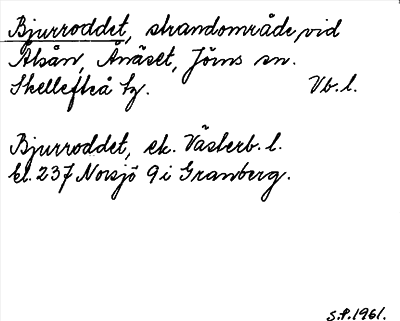 Bjurroddet, strandområde vid
Ålsån, Ånäset, Jörns sn.
Skellefteå tg. Vb. l.
Bjurroddet, ek. Västerb. l.
bl. 237 Norsjö 9i Granberg.
S.P. 1961.